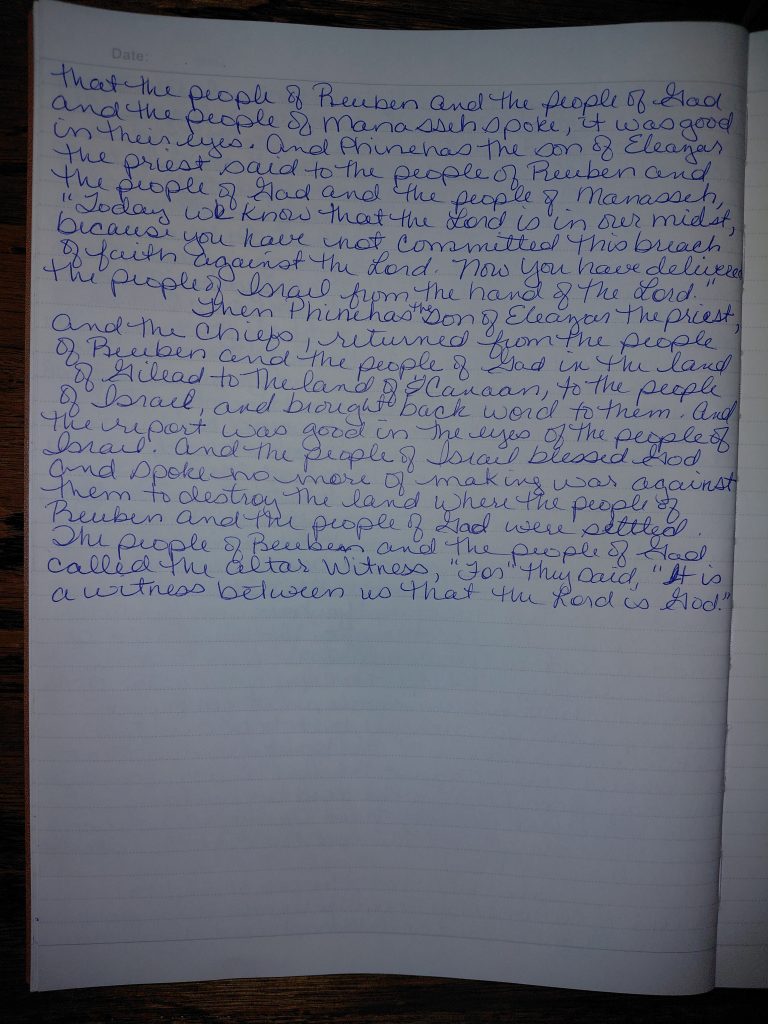 Date:
that the people of Reuben and the people of Gad
and the people of Manasseh spoke, it was good
in their eyes. And Phinehas the son of Eleazar
the priest said to the people of Reuben and
the people of Gad and the people of Manasseh,
"Today we know that the Lord is in our midst,
because you have not committed this breach
of faith against the Lord. Now you have delivered
the people of Israel from the hand of the Lord."
Then Phinehas the son of Eleazar the priest,
and the chiefs, returned from the people
of Reuben and the people of Gad in the land
of Gilead to the land of Canaan, to the people
of Israel, and brought back word to them. And
the report was good in the eyes of the people of
Israel. And the people of Israel blessed God
and spoke no more of making war against
them to destroy the land where the people of
Reuben and the people of Gad were settled.
The people of Reuben and the people of Gad
called the altar Witness, "For" they said, "It is
a witness between us that the Lord is God."